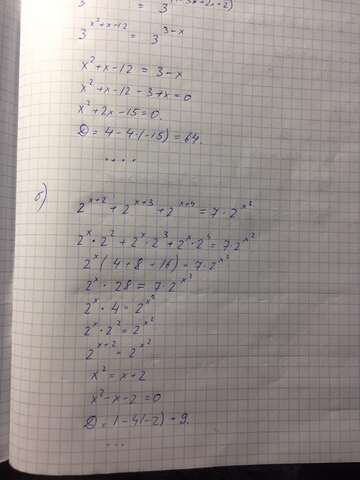 3^(x²+x-12) = 3^(3-x)
x²+x-12 = 3-x
x²+x-12-3+x=0
x²+2x-15=0.
D=4-4·(-15)=64.
....
б)
2^(x+2)+2^(x+3)+2^(x+4)=7·2^(x²)
2^x·2²+2^x·2³+2^x·2⁴=7·2^(x²)
2^x(4+8+16)=7·2^(x²)
2^x·28=7·2^(x²)
2^x·4=2^(x²)
2^x·2²=2^(x²)
2^(x+2)=2^(x²)
x²=x+2
x²-x-2=0
D=1-4(-2)=9.
...